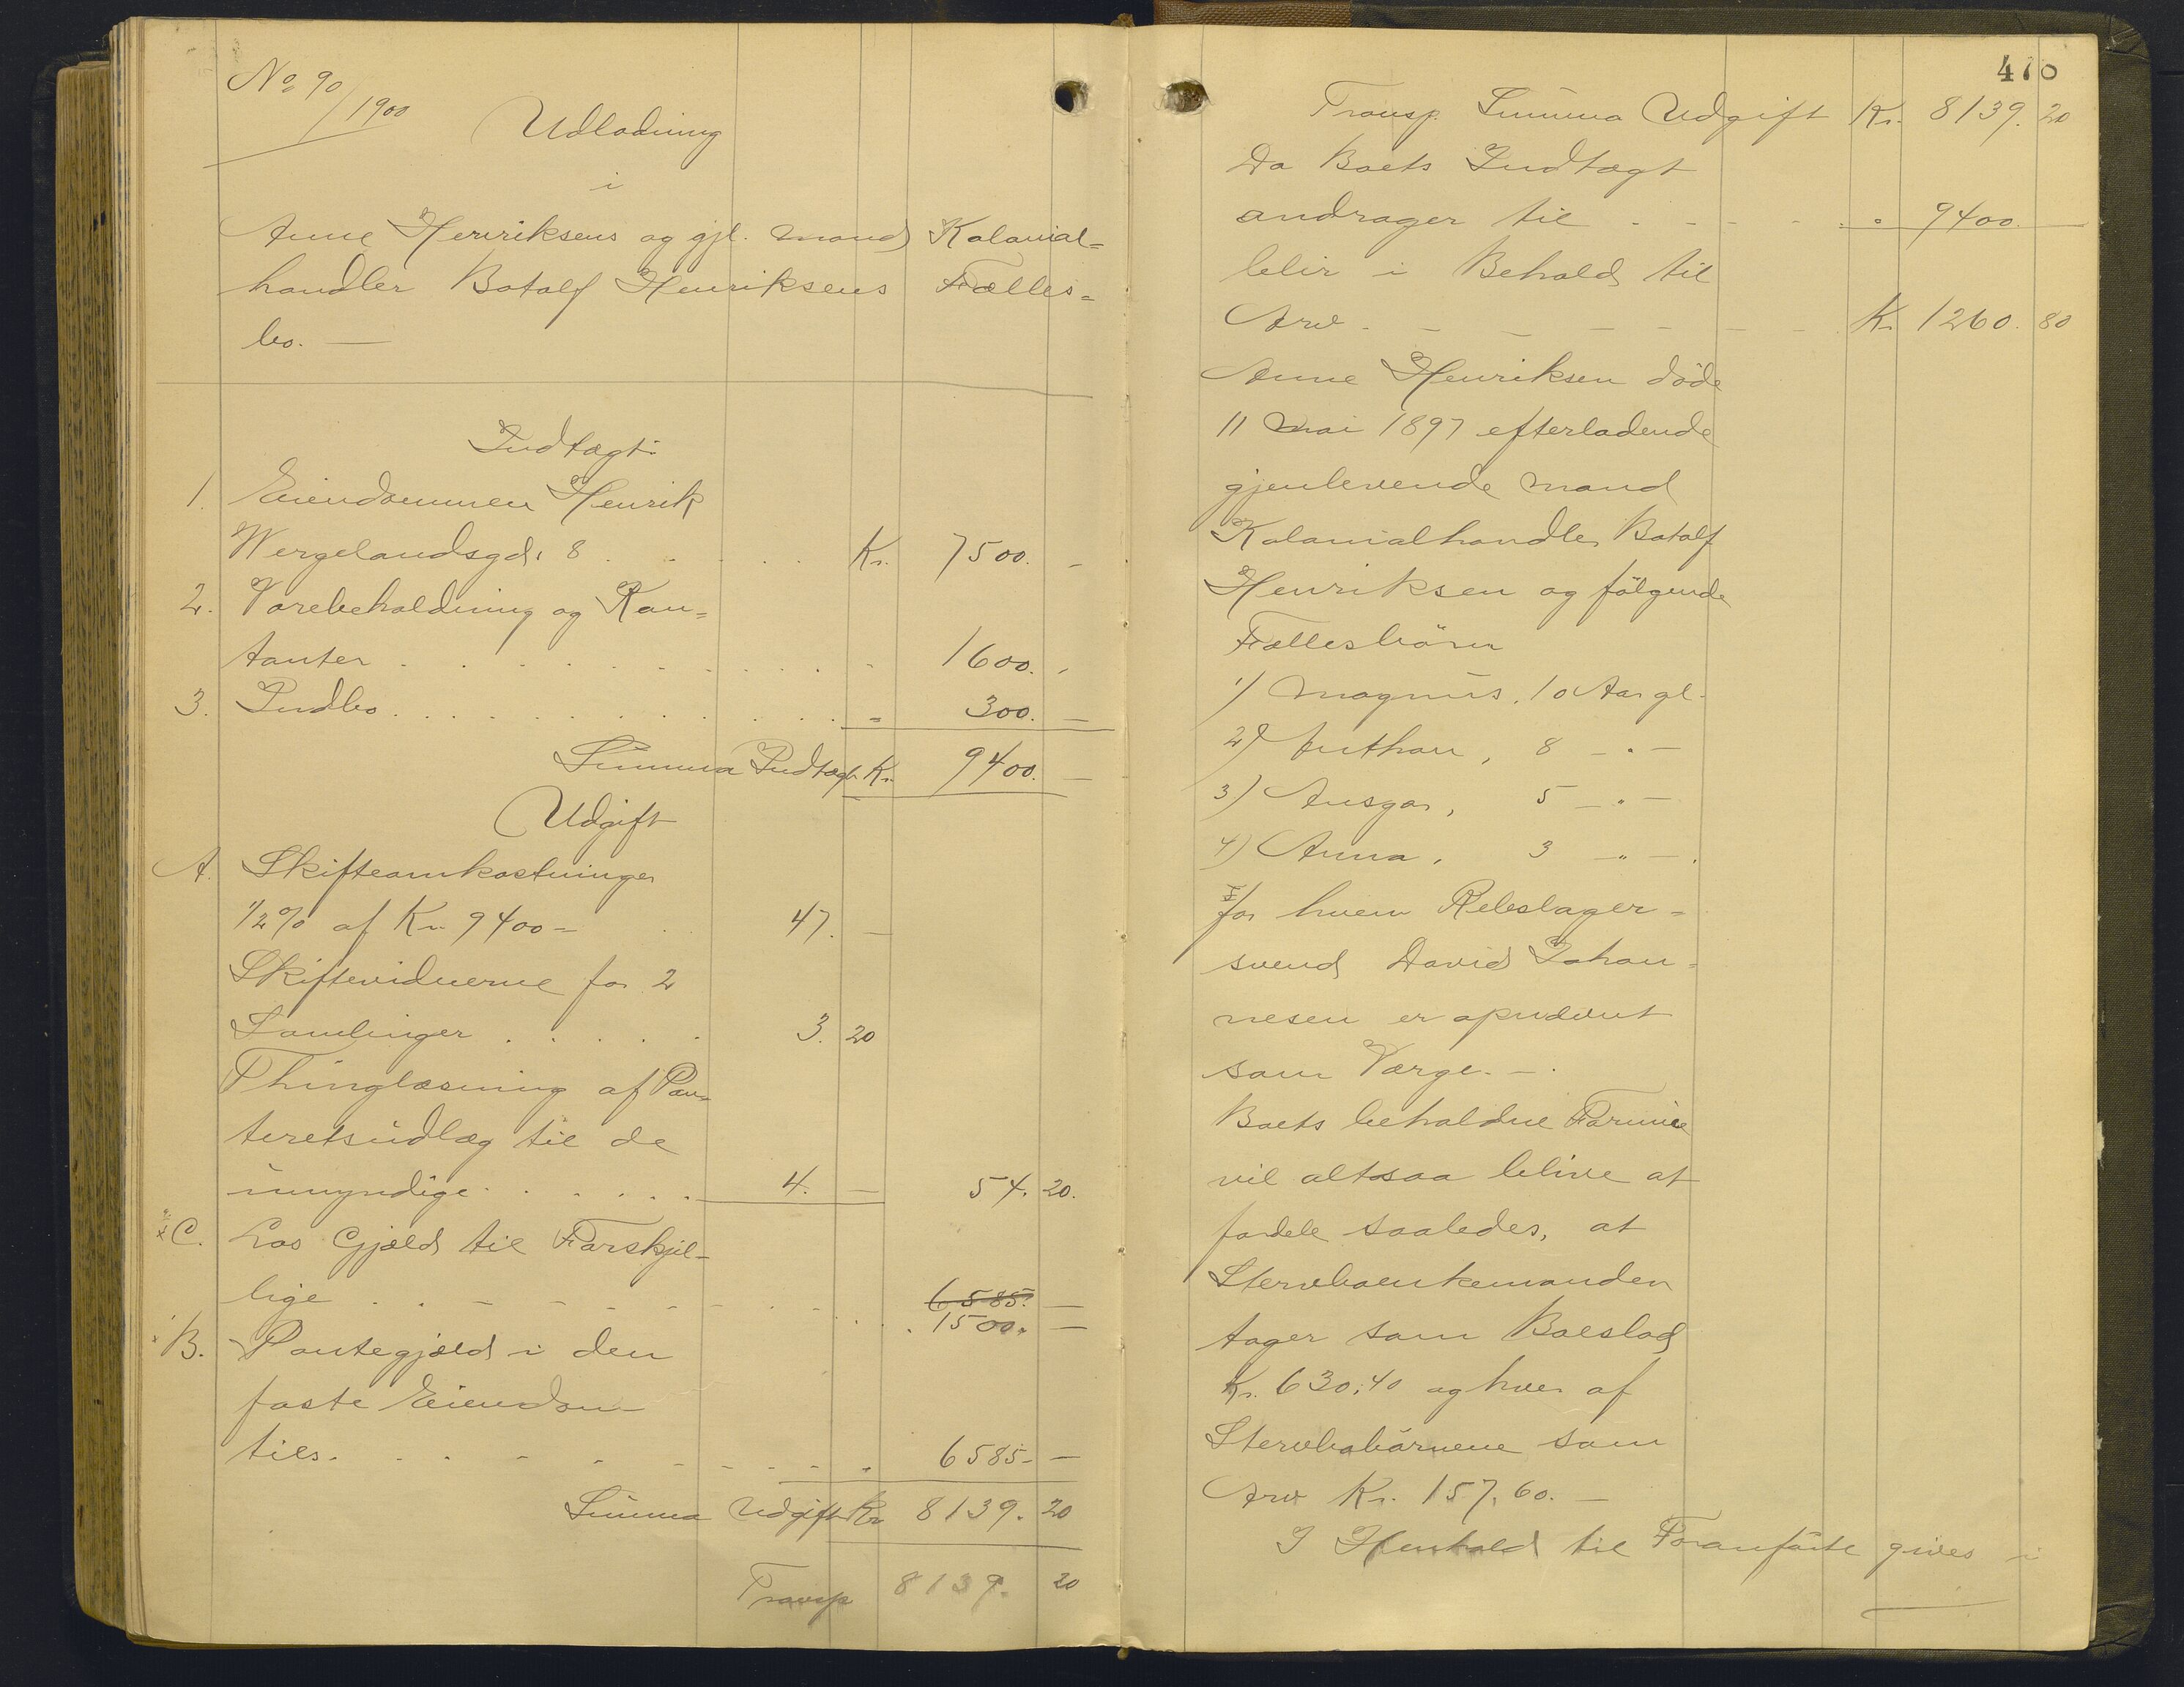 No 90/1900
Udlodning
i
Anne Henriksens og gjl. Mand Kolonial=
handler Botolf Henriksens Fælles=
bo. —
Indtægt:
1. Eiendommen Henrik
Wergelandsgd. 8 . . . . Kr. 7500. -
2. Varebeholdning og Kon=
tanter . . . . . . . . . 1600. -
3. Indbo . . . . . . . . . " 300. —
Summa Indtægt Kr. 9400. —
Udgift
A. Skifteomkostninger
1/2 % af Kr. 9400 = 47. —
Skiftevidnerne for 2
Samlinger . . . . . 3. 20
Thinglæsning af Pan=
teretsudlæg til de
umyndige . . . . . . 4. — 54. 20.
C. Løs Gjæld til Forskjel-
lige . . - - - - - - . 6585. —
1500. —
B. Pantegjæld i den
faste Eiendom
tils. . . - - - - - . " 6585 - —
Summa Udgift Kr 8139. 20
Transp 8139. 20
470
Transp. Summa Udgift Kr. 8139. 20
Da Boets Indtægt
andrager til . - - - . " 9400. —
blir i Behold til
Arv . - - - - - - . K. 1260. 80
Anne Henriksen døde
11 Mai 1897 efterladende
gjenlevende Mand
Kolonialhandler Botolf
Henriksen og følgende
Fællesbörn
1) Magnus, 10 Aar gl.
2) Anthon, 8 — " —
3) Ansgar, 5 — " —
4) Anna, 3 — " — .
for hvem Rebslager=
svend David Johan=
nesen er opnævnt
som Værge. — .
Boets beholdne Formue
vil altsaa blive at
fordele saaledes, at
Stervboenkemanden
tager som Boeslod
Kr. 630,40 og hver af
Stervbobörnene som
Arv Kr. 157,60. —
I Henhold til Foranførte gives i